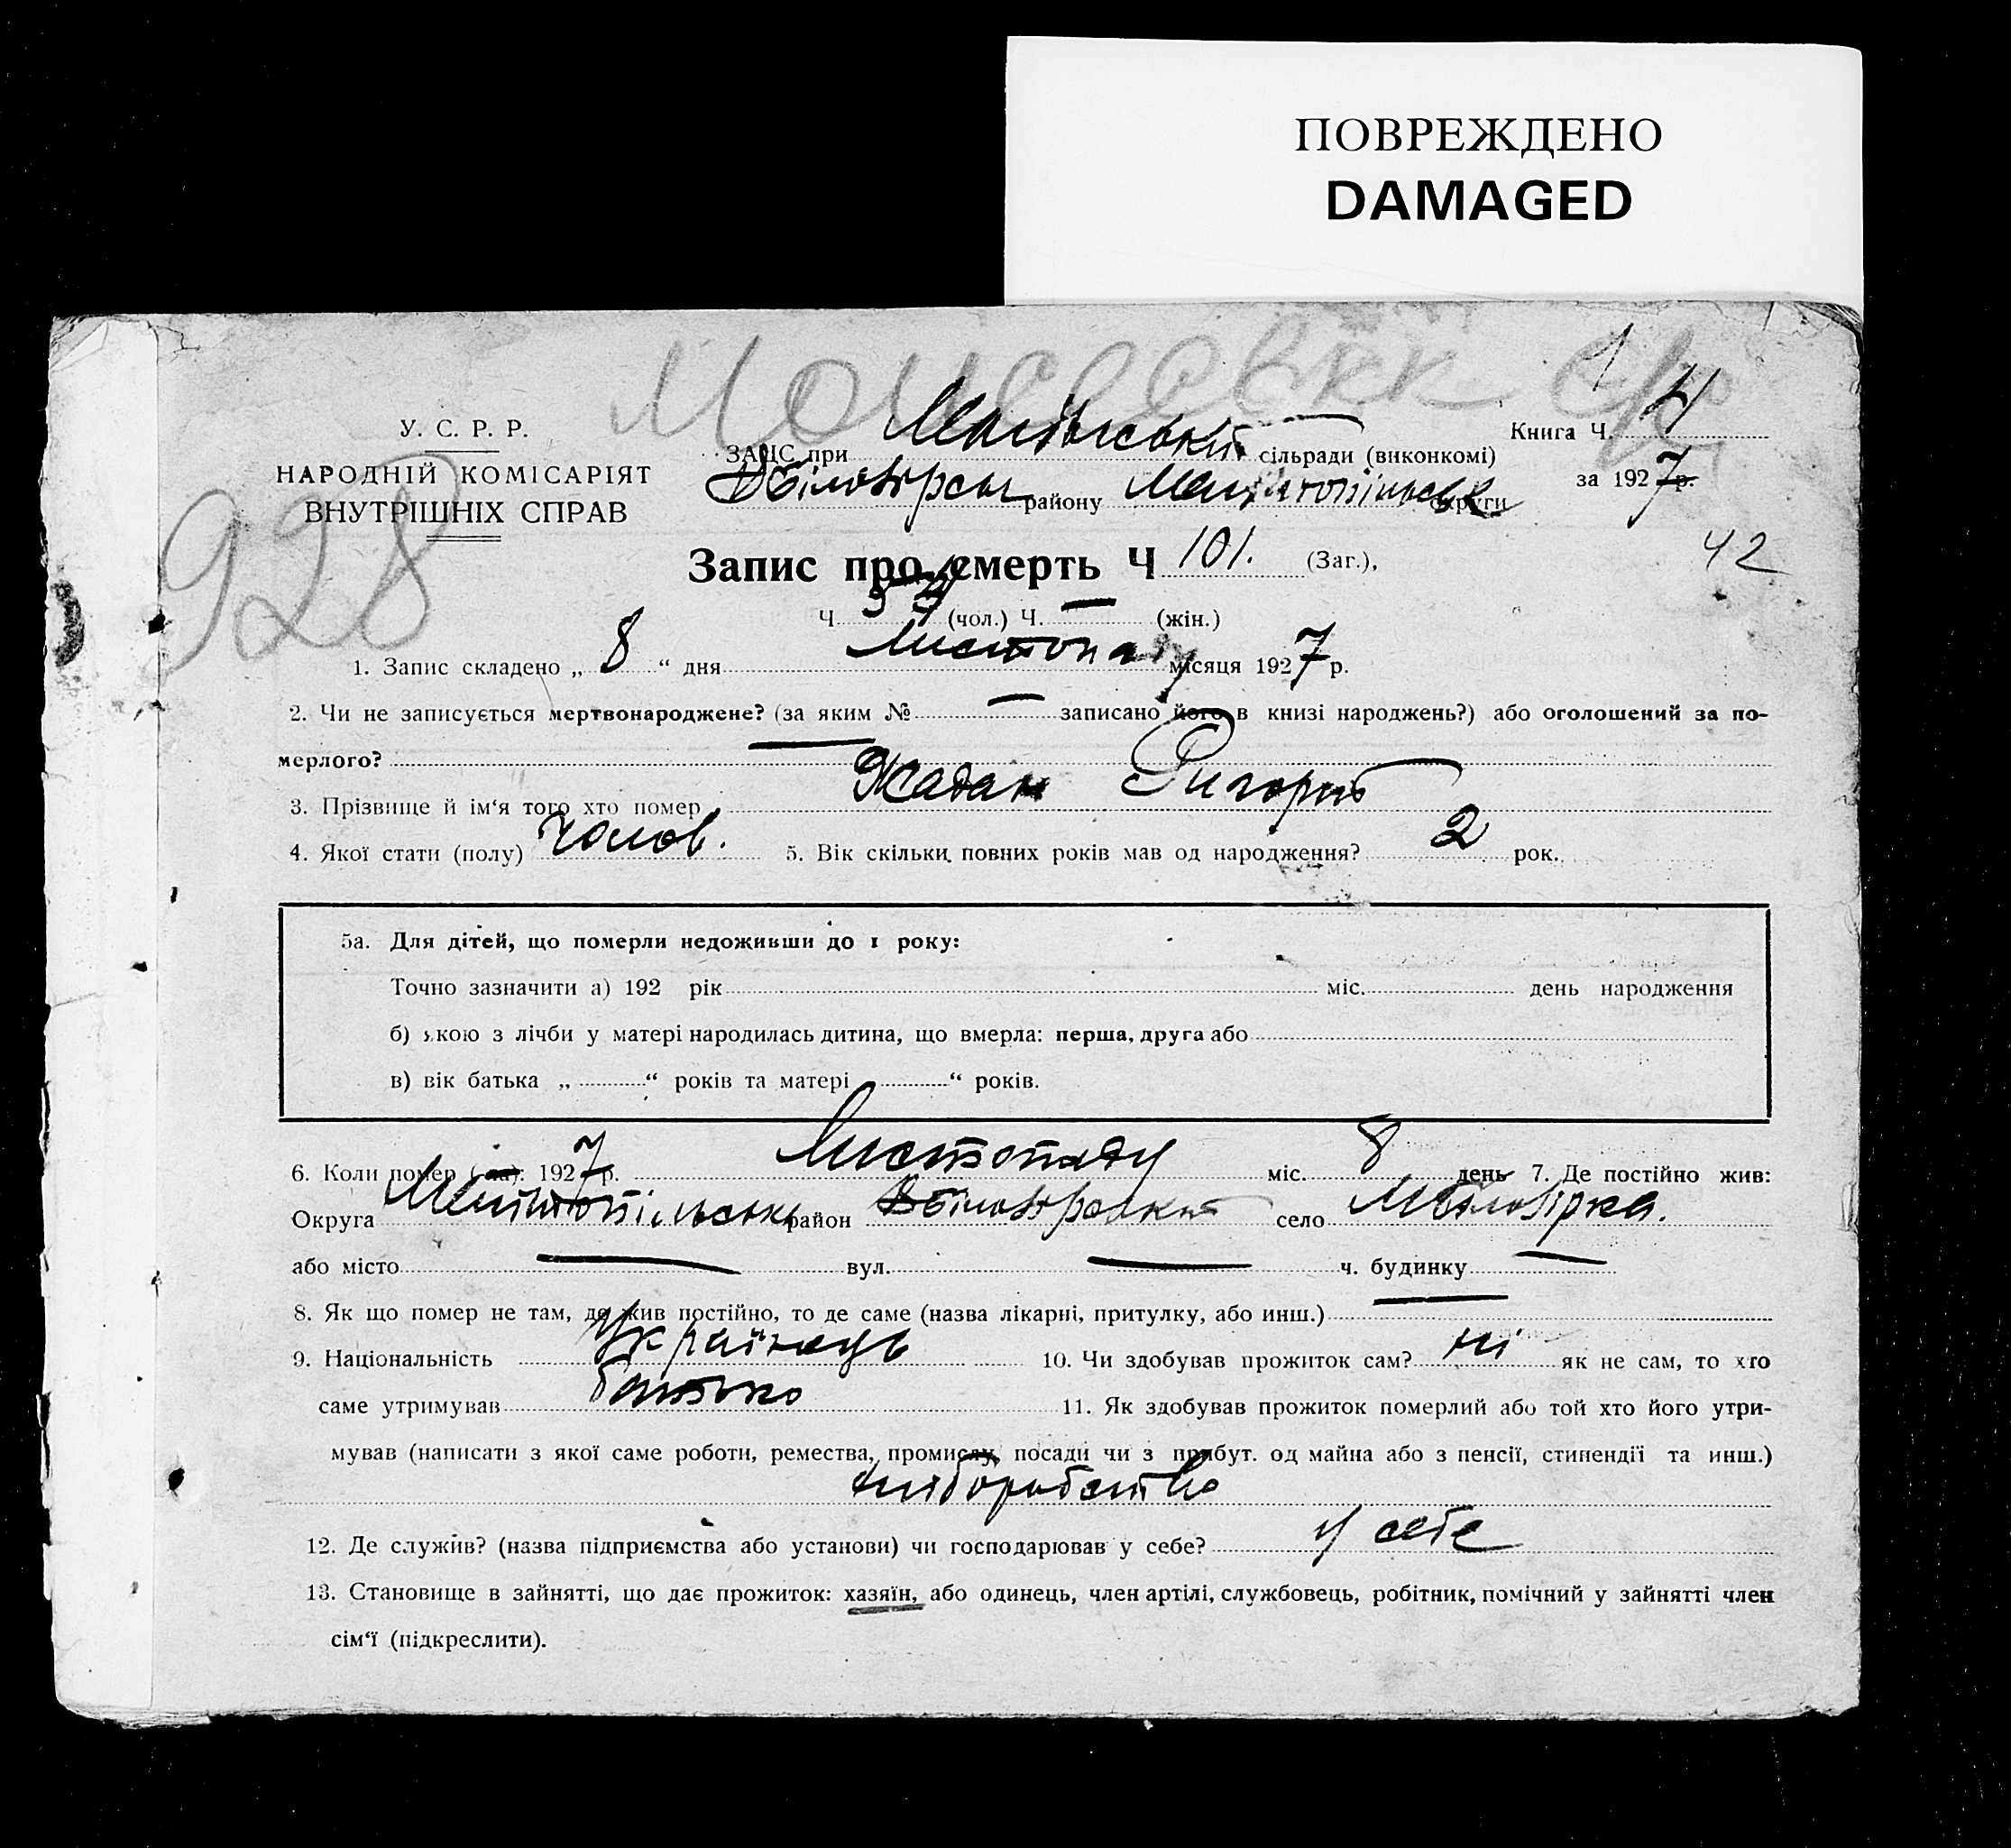 ПОВРЕЖДЕНО
DAMAGED
У. С. Р. Р.
НАРОДНІЙ КОМІСАРІЯТ
ВНУТРІШНІХ СПРАВ
928
Книга Ч. 4
ЗАЦС при сільради (виконкомі)
району Мелітопільськ округи
за 1927 р.
Запис про смерть Ч 101. (Заг.),
42
Ч 59 (чол.) Ч. — (жін.)
1. Запис складено „ 8 “ дня Листопаду місяця 1927 р.
2. Чи не записується мертвонароджене? (за яким № — записано його в книзі народжень?) або оголошений за по-
мерлого? —
3. Прізвище й ім‘я того хто помер Жадан Григорій
4. Якої стати (полу) Чолов. 5. Вік скільки повних років мав од народження? 2 рок.
5а. Для дітей, що померли недоживши до 1 року:
Точно зазначити а) 192 рік міс. день народження
б) якою з лічби у матері народилась дитина, що вмерла: перша, друга або
в) вік батька „ “ років та матері „ “ років.
6. Коли помер (ла): 1927 р. Листопаду міс. 8 день 7. Де постійно жив:
Округа Мелітопільськ район село М Білозірка.
або місто — вул. — ч. будинку —
8. Як що помер не там, де жив постійно, то де саме (назва лікарні, притулку, або инш.) —
9. Національність Українець 10. Чи здобував прожиток сам? ні як не сам, то хто
саме утримував батько 11. Як здобував прожиток померлий або той хто його утри-
мував (написати з якої саме роботи, ремества, промислу, посади чи з прибут. од майна або з пенсії, стипендії та инш.)
хліборобство
12. Де служив? (назва підприємства або установи) чи господарював у себе? у себе
13. Становище в зайнятті, що дає прожиток: хазяїн, або одинець, член артілі, службовець, робітник, помічний у зайнятті член
сім‘ї (підкреслити).